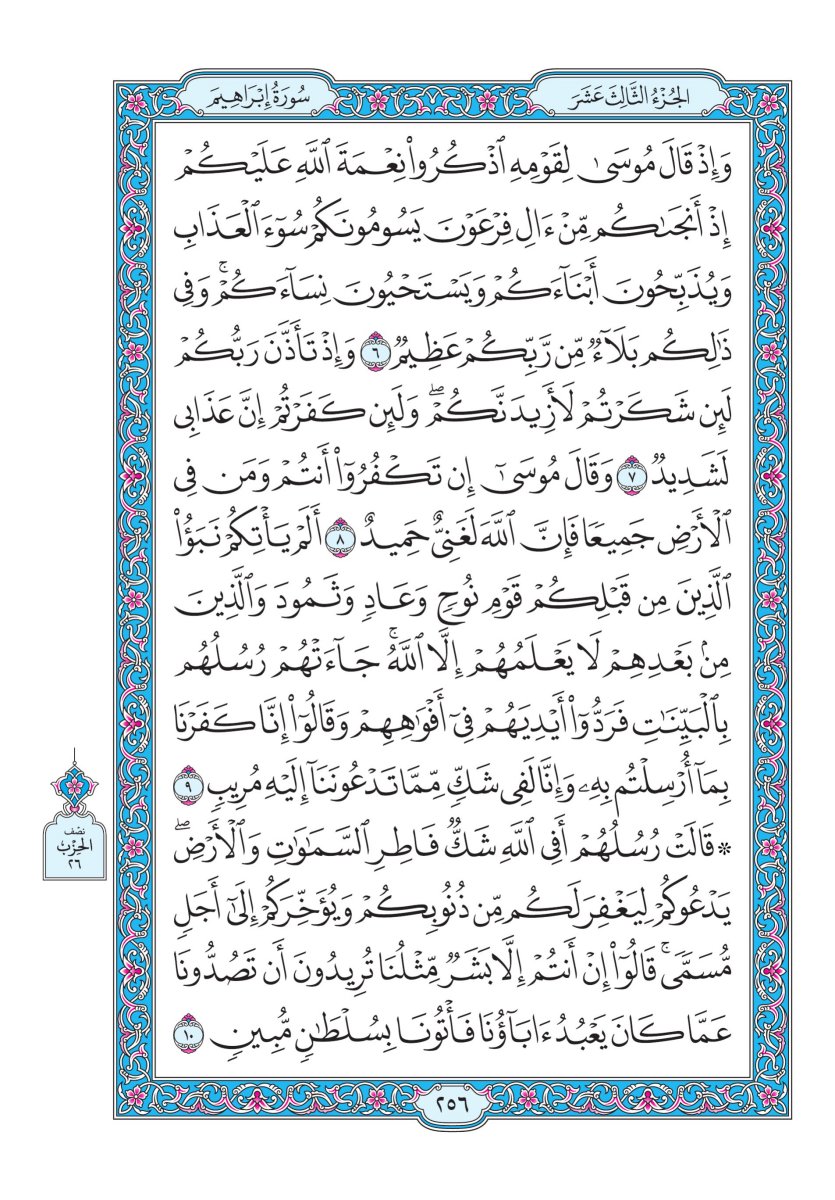 سُورَةُ إِبْرَاهِيمَ
الجُزْءُ الثَّالِثَ عَشَرَ
وَإِذۡ قَالَ مُوسَىٰ لِقَوۡمِهِ ٱذۡكُرُواْ نِعۡمَةَ ٱللَّهِ عَلَيۡكُمۡ
إِذۡ أَنجَىٰكُم مِّنۡ ءَالِ فِرۡعَوۡنَ يَسُومُونَكُمۡ سُوٓءَ ٱلۡعَذَابِ
وَيُذَبِّحُونَ أَبۡنَآءَكُمۡ وَيَسۡتَحۡيُونَ نِسَآءَكُمۡۚ وَفِي
ذَٰلِكُم بَلَآءٞ مِّن رَّبِّكُمۡ عَظِيمٞ ٦ وَإِذۡ تَأَذَّنَ رَبُّكُمۡ
لَئِن شَكَرۡتُمۡ لَأَزِيدَنَّكُمۡۖ وَلَئِن كَفَرۡتُمۡ إِنَّ عَذَابِي
لَشَدِيدٞ ٧ وَقَالَ مُوسَىٰٓ إِن تَكۡفُرُوٓاْ أَنتُمۡ وَمَن فِي
ٱلۡأَرۡضِ جَمِيعٗا فَإِنَّ ٱللَّهَ لَغَنِيٌّ حَمِيدٌ ٨ أَلَمۡ يَأۡتِكُمۡ نَبَؤُاْ
ٱلَّذِينَ مِن قَبۡلِكُمۡ قَوۡمِ نُوحٖ وَعَادٖ وَثَمُودَ وَٱلَّذِينَ
مِنۢ بَعۡدِهِمۡ لَا يَعۡلَمُهُمۡ إِلَّا ٱللَّهُۚ جَآءَتۡهُمۡ رُسُلُهُم
بِٱلۡبَيِّنَٰتِ فَرَدُّوٓاْ أَيۡدِيَهُمۡ فِيٓ أَفۡوَٰهِهِمۡ وَقَالُوٓاْ إِنَّا كَفَرۡنَا
بِمَآ أُرۡسِلۡتُم بِهِۦ وَإِنَّا لَفِي شَكّٖ مِّمَّا تَدۡعُونَنَآ إِلَيۡهِ مُرِيبٖ ٩
۞ قَالَتۡ رُسُلُهُمۡ أَفِي ٱللَّهِ شَكّٞ فَاطِرِ ٱلسَّمَٰوَٰتِ وَٱلۡأَرۡضِۖ
يَدۡعُوكُمۡ لِيَغۡفِرَ لَكُم مِّن ذُنُوبِكُمۡ وَيُؤَخِّرَكُمۡ إِلَىٰٓ أَجَلٖ
مُّسَمّٗىۚ قَالُوٓاْ إِنۡ أَنتُمۡ إِلَّا بَشَرٞ مِّثۡلُنَا تُرِيدُونَ أَن تَصُدُّونَا
عَمَّا كَانَ يَعۡبُدُ ءَابَآؤُنَا فَأۡتُونَا بِسُلۡطَٰنٖ مُّبِينٖ ١٠
نصف
الحزب
٢٦
٢٥٦